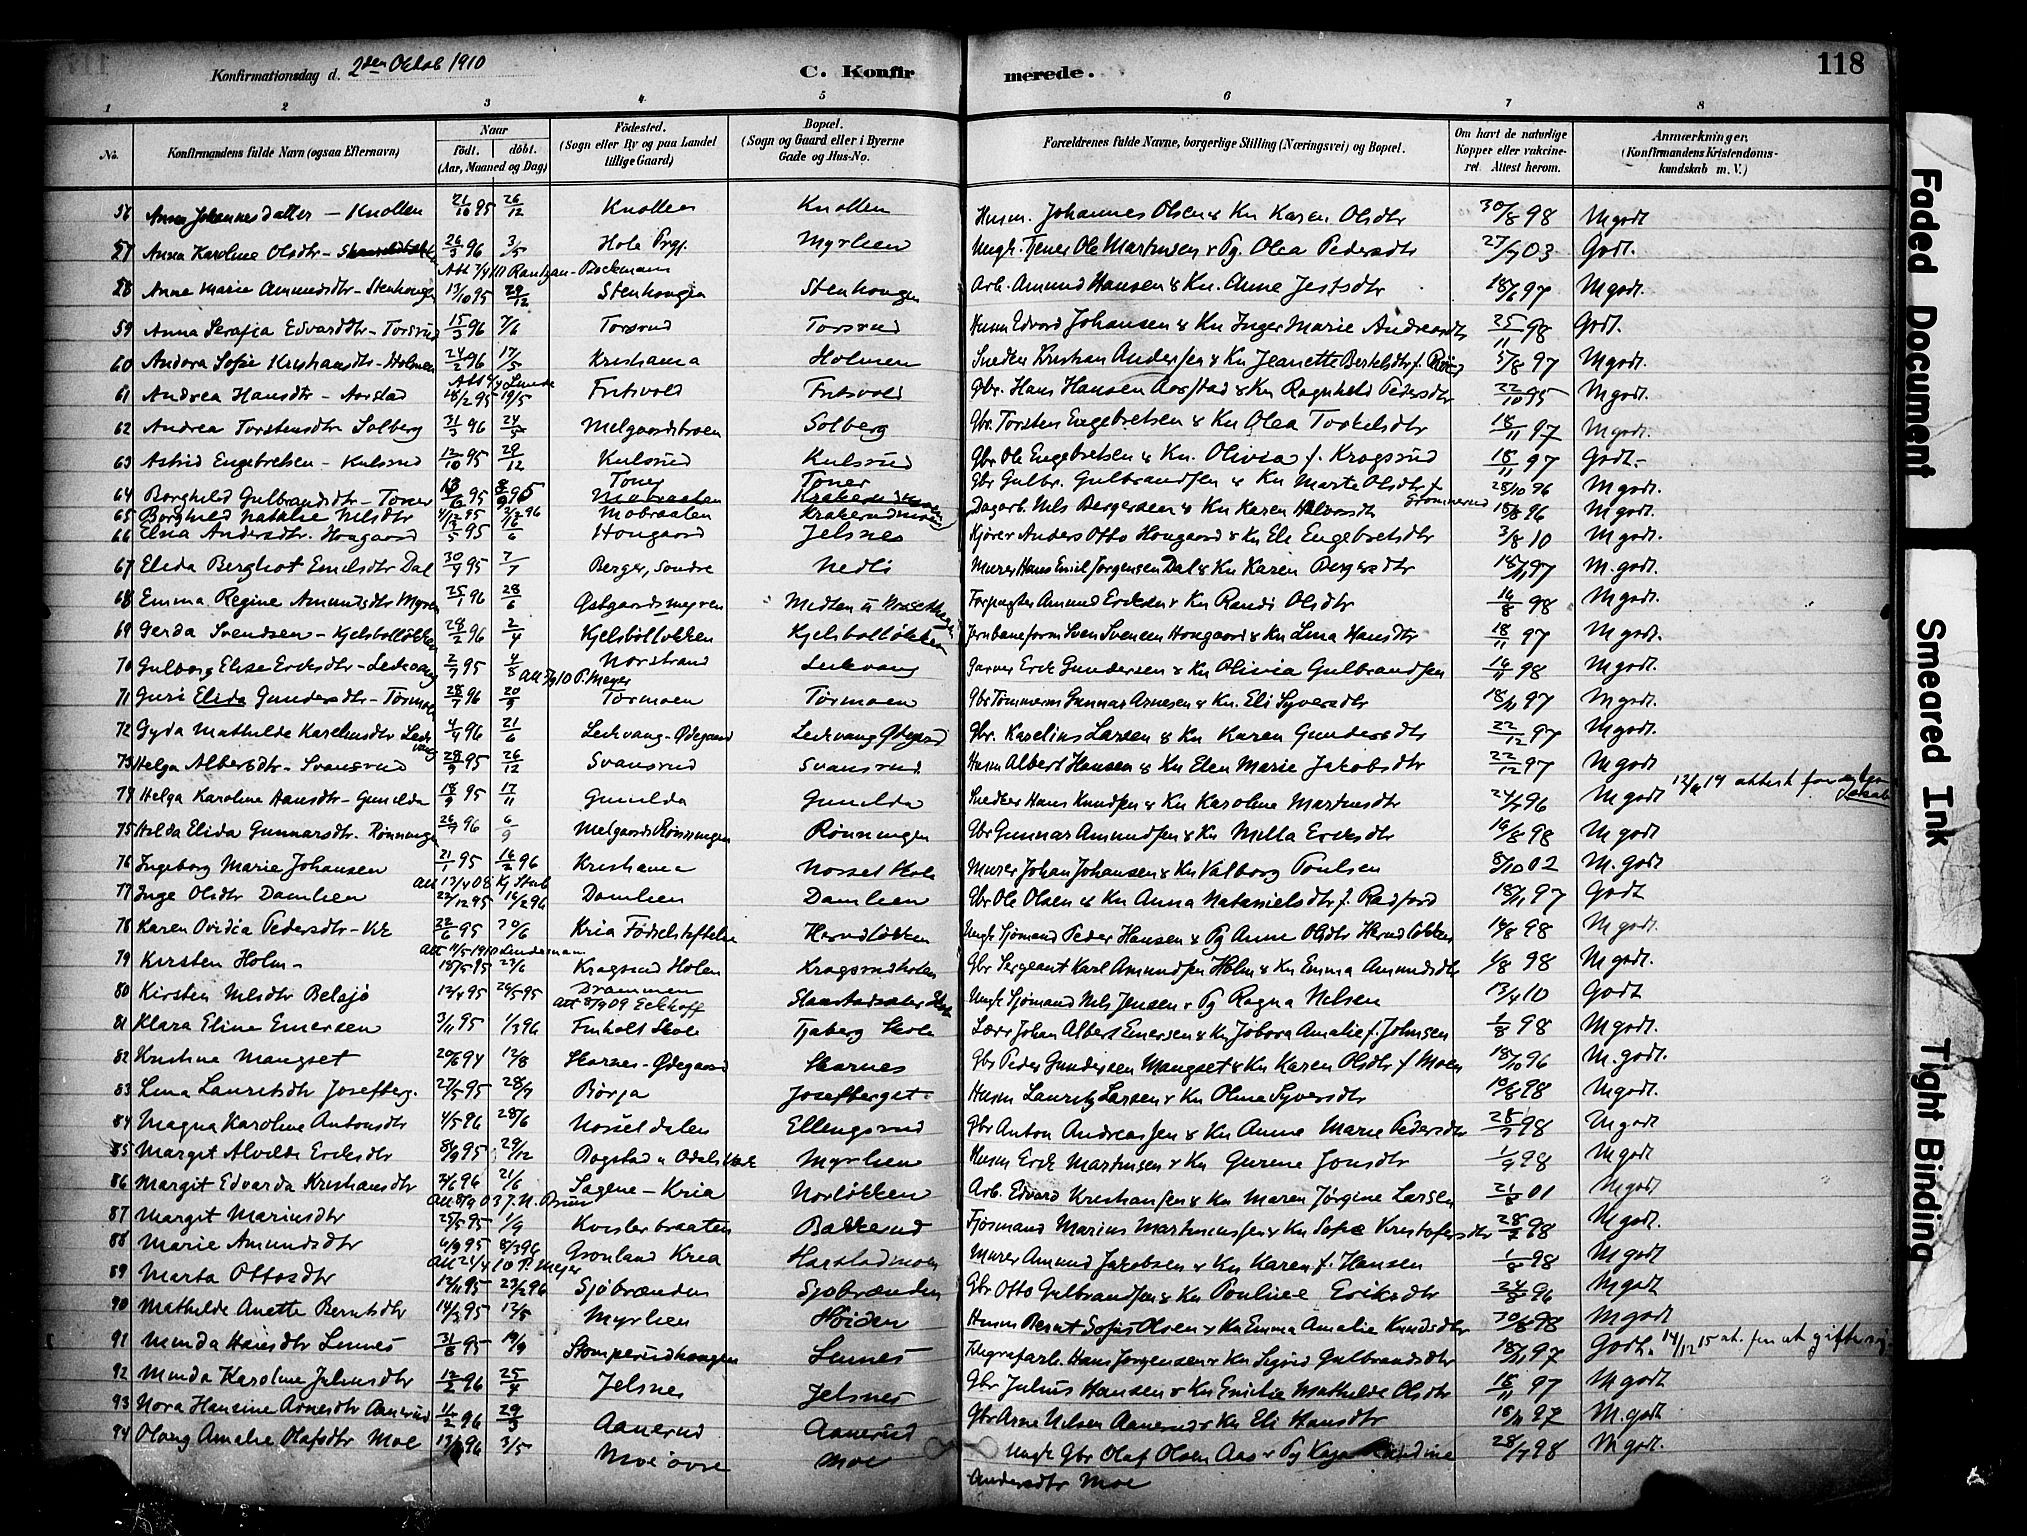 Konfirmationsdag d. 2den Oktob 1910 C. Konfirmerede. 118
1 2 3 4 5 6 7 8
No. Konfirmandens fulde Navn (ogsaa Efternavn) Naar Födt. döbt. (Aar, Maaned og Dag) Födested. (Sogn eller By og paa Landet tillige Gaard) Bopæl. (Sogn og Gaard eller i Byerne Gade og Hus-No. Forældrenes fulde Navne, borgerlige Stilling (Næringsvei) og Bopæl. Om havt de naturlige Kopper eller vakcineret. Attest herom. Anmærkninger. (Konfirmandens Kristendomskundskab m. V.)
56 Anna Johannesdatter - Knollen 21/10 95 26/12 Knollen Knollen Husm. Johannes Olsen & Kn Karen Olsdtr 30/8 98 M godt
57 Anna Karoline Olsdtr - 26/3 96 3/5 Hole Prgj. Myrlien Ungk. Tjener Ole Martinsen & Pg. Olea Pedersdtr 27/7 03 Godt.
Att 7/4 10 Rantzau-Bockmann
58 Anne Marie Amundsdtr - Stenhougen 13/10 95 29/12 Stenhougen Stenhougen Arb. Amund Hansen & Kn. Anne Jestsdtr 18/6 97 M godt.
59 Anna Serafia Edvardsdtr - Torsrud 15/3 96 7/6 Torsrud Torsrud Husm Edvard Johansen & Kn Inger Marie Andreasdtr 25/11 98 Godt.
60 Andora Sofie Kristiansdtr - Holmen 24/2 96 17/5 Kristiania Holmen Snedker Kristian Andersen & Kn Jeanette Berteldtr f. 5/8 97 M godt.
61 Andrea Hansdtr - Aarstad 18/2 95 19/5 Fritsvold Fritsvold Gbr. Hans Hansen Aarstad & Kn Ragnhild Pedersdtr 22/10 95 M godt.
62 Andrea Torstensdtr Solberg 31/3 96 24/5 Melgaardsbraaten Solberg Gbr. Torsten Engebretsen & Kn Olea Torkelsdtr 18/11 97 M godt.
63 Astrid Engebretsen - Kulsrud 12/10 95 29/12 Kulsrud Kulsrud Gbr Ole Engebretsen & Kn. Olivia f. Kragsrud 18/11 97 Godt.-
64 Borghild Gulbrandsdtr - Toner 18/6 95 8/9 95 Toner Toner Gbr Gulbr. Gulbrandsen & Kn Marte Olsdtr f. Grammerud 28/10 96 M godt.
65 Borghild Natalie Nilsdtr 4/12 95 2/2 96 Mobraaten Krakerudmoen Dagarb. Nils Bergersen & Kn Karen Halvorsdt 18/8 96 M godt.
66 Elna Andersdtr. Hougaard 12/5 95 16/6 Hougaard Jelsnes Kjører Anders Otto Hougaard & Kn Eli Engebretsdtr 3/8 10 M godt.
67 Elida Berghot Emilsdtr Dal 30/4 95 7/7 Berger, søndre Nedli Murer Hans Emil Jørgensen Dal & Kn Karen Bergersdtr 18/11 97 M. godt.
68 Emma Regine Amundsdtr Myren 25/1 96 28/6 Østgaardsmyren Medlien u Forpagter Amund Eriksen & Kn Randi Olsdtr 16/8 98 M godt.
69 Gerda Svendsen - Kjelsbølløkken 28/2 96 2/4 Kjelsbølløkken Kjelsbolløkken Jernbaneform Sven Svensen Hougaard & Kn Lina Hansdtr 18/11 97 M godt.
70 Gulborg Elise Eriksdtr - Leikvang 2/7 95 4/8 Norstrand Leikvang Garver Erik Gundersen & Kn Olivia Gulbrandsen 16/8 98 M godt.
71 Guri Elida Gundersdtr - Tormoen 28/7 96 20/9 Tormoen Tormoen Gbr Tømmerm Gunnar Arnesen & Kn. Eli Syversdtr 18/11 97 M godt.
72 Gyda Mathilde Karelinsdtr Leikvang 4/4 96 21/6 Leikvang-Ødegaard Leikvang Ødegard Gbr. Karelius Larsen & Kn Karen Gundersdtr 22/12 97 M godt.
73 Helga Albertsdtr - Svansrud 28/9 95 26/12 Svansrud Svansrud Husm Albert Hansen & Kn Elen Marie Jakobsdtr 22/12 97 M godt
74 Helga Karoline Hansdtr - Gunilda 18/9 95 17/11 Gunilda Gunilda Snedker Hans Knudsen & Kn Karoline Martinsdtr 24/7 96 M godt
75 Hilda Elida Gunnarsdtr. Rønningen 26/7 96 6/9 Melgaards Rønningen Rønningen Gbr Gunnar Amundsen & Kn Milla Eriksdtr 16/8 98 M godt
76 Ingeborg Marie Johansen 21/1 95 16/2 96 Kristiania Norset Skole Murer Johan Johansen & Kn Valborg Poulsen 8/10 02 M. godt
77 Inge Olsdtr Damlien 22/12 95 16/2 96 Damlien Damlien Gbr Ole Olsen & Kn Anna Natanielsdtr f. Rasford 18/11 97 Godt
78 Karen Ovidia Pedersdtr - 22/6 95 30/6 Kria Fødselsstiftelse Herndløkken Ungk Sjømand Peder Hansen & Pg Anne Olsdtr Herndløkken 14/8 98 M godt.
79 Kirsten Holm - 18/5 95 23/6 Kragsrud Holen Kragsrudholen Gbr Sergeant Karl Amundsen Holm & Kn Emma Amundsdtr 1/8 98 M godt.
80 Kirsten Nilsdtr Belsjø 13/4 95 26/5 95 Drammen Ungk Sjømand Nils Jensen & Pg Ragna Nilsen 13/4 10 Godt
Att 8/9 09 Eckhoff
81 Klara Eline Emersen 3/11 95 1/3 96 Finholt Skole Tjaberg Skole Lærer Johan Albert Emersen & Kn Jobora Amalie f. Johnsen 1/8 98 M godt.
82 Kristine Mangset 20/6 94 12/8 Skarnes-Ødegaard Skarnes Gbr Peder Gundersen Mangset & Kn Karen Olsdtr f Moen 18/10 96 M. godt.
83 Lina Lauritsdtr Josefberg. 27/5 95 28/7 Børja Josefberget Husm Lauritz Larsen & Kn Oline Syversdtr 10/8 98 M godt.
84 Magna Karoline Antonsdtr 4/5 96 28/6 Norseldalen Ellengsrud Gbr Anton Andreassen & Kn Anne Marie Pedersdtr 28/7 98 M godt
85 Margit Alvilde Eriksdtr 8/9 95 29/12 Bogstad u Odals Værk Myrlien Husm Erik Martinsen & Kn Gurine Jonsdtr 1/9 98 M godt
86 Margit Edvarda Kristiansdtr 2/6 96 21/6 Sagene-Kria Norløkken Arb. Edvard Kristiansen & Kn Maren Jørgine Larsen 21/8 01 M godt
87 Margit Mariusdtr 25/5 95 1/9 Kvislerbraaten Bakkerud Fjøsmand Marius Martiniussen & Kn Sofie Kristofersdtr 28/2 98 M godt.
88 Marie Amundsdtr 6/9 95 8/3 96 Grønland Kria Harstadmoen Murer Amund Jakobsen & Kn Karen f. Hansen 1/8 98 M godt
89 Marta Ottosdtr 12/11 95 23/2 96 Sjøbrænden Sjøbrænden Gbr Otto Gulbrandsen & Kn Pouline Eriksdtr 24/8 96 M godt
90 Mathilde Anette Berntsdtr 14/3 95 12/5 Myrlien Høiden Husm Bernt Sofus Olsen & Kn Emma Amalie Knudsdtr 30/8 98 M godt
91 Minda Hansdtr Lunnes 31/8 95 19/9 Stomperudhougen Lunnes Telegrafarb. Hans Jørgensen & Kn Sigrid Gulbrandsdtr 18/11 97 Godt. 14/12 15 at. for at gifte sig
92 Minda Karoline Juliusdtr 12/2 96 25/4 Jelsnes Jelsnes Gbr Julius Hansen & Kn Emilie Mathilde Olsdtr 18/11 97 M godt
93 Nora Hansine Arnesdtr Aanerud 11/2 96 29/3 Aanerud Aanerud Gbr Arne Nilsen Aanerud & Kn Eli Hansdtr 18/11 97 M. godt
94 Olaug Amalie Olafsdtr Moe 13/ 96 3/5 Moe øvre Moe Ungk Gbr Olaf Olsen Aas & Pg Kaja Andersdtr Moe 28/7 98 M godt.
Faded Document
Smeared Ink
Tight Binding